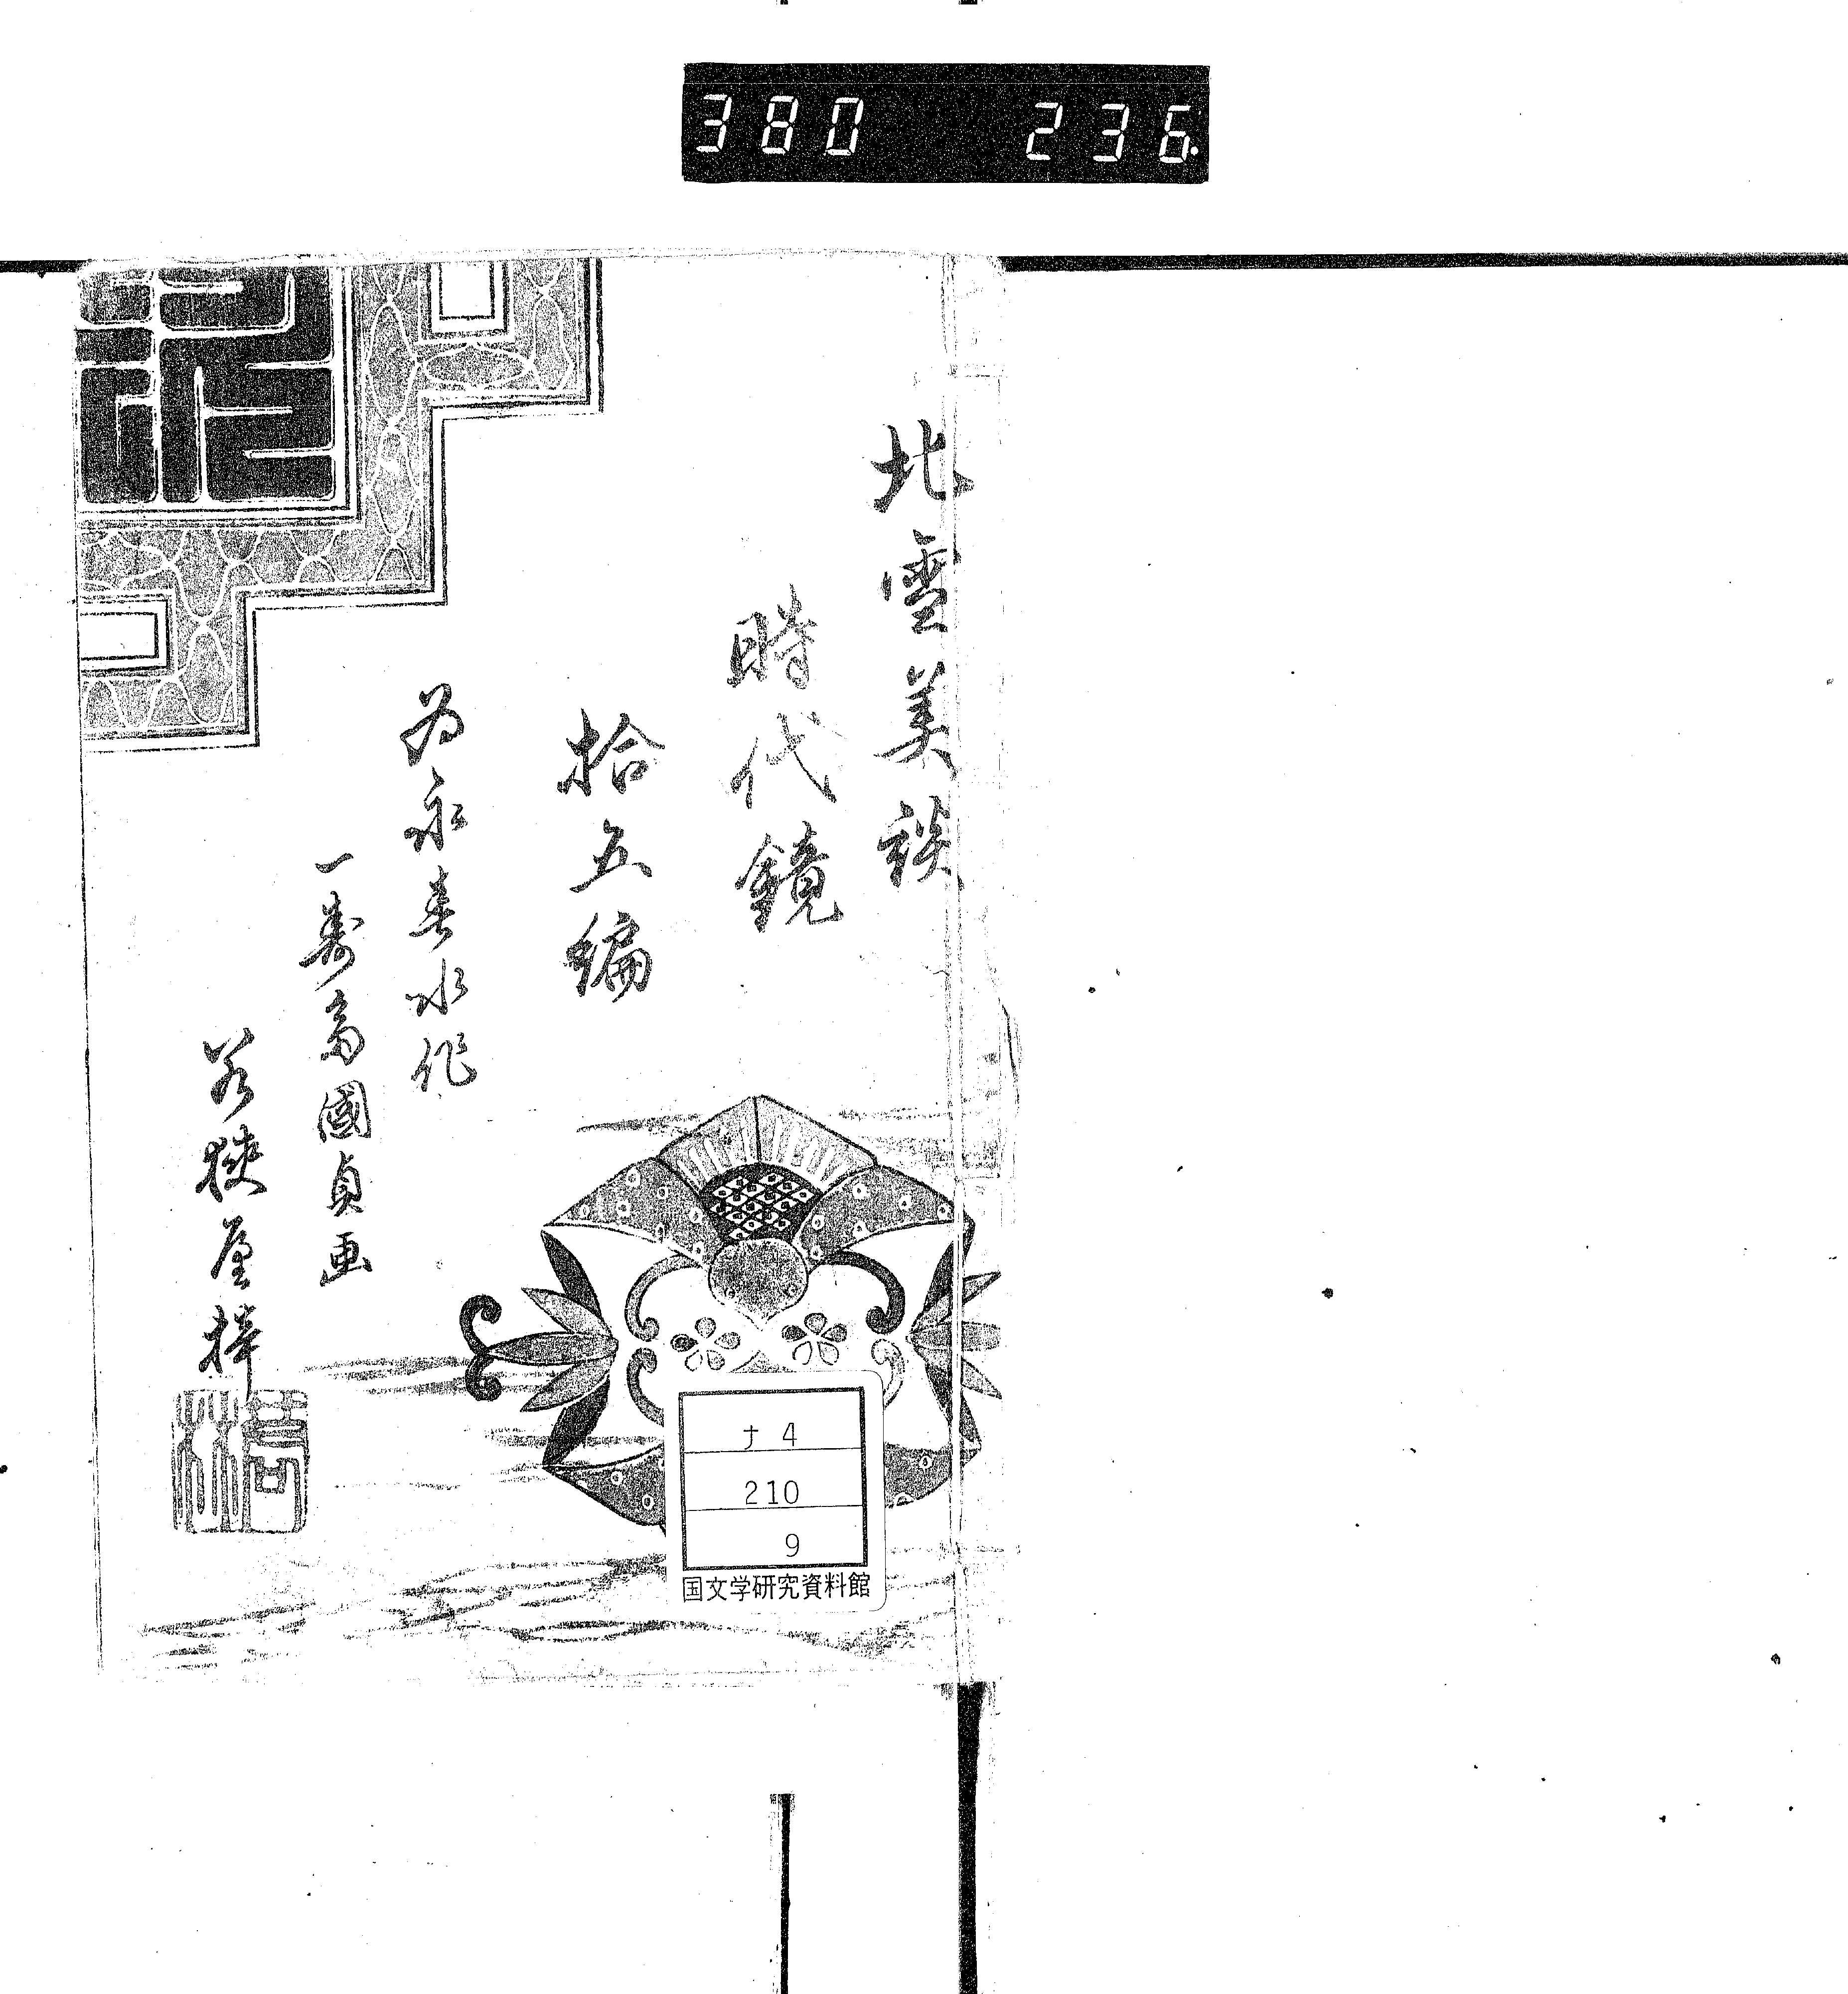 380 236.
北雪美談
時代鏡
拾五編
為永春水作
一壽斎國貞画
若狭屋梓
ナ4
210
9
国文学研究資料館